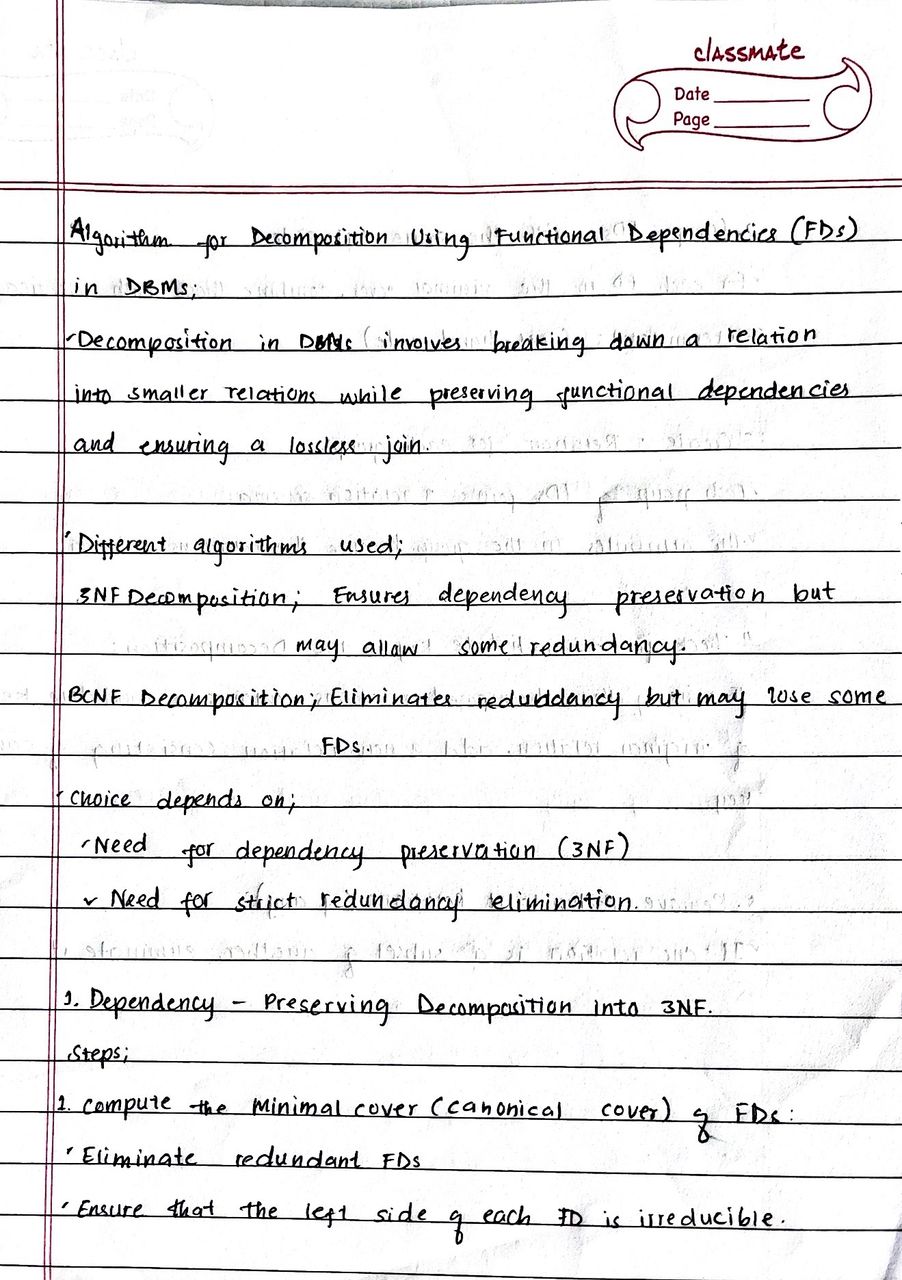 classmate
Date
Page
Algorithm for Decomposition Using Functional Dependencies (FDs)
in DBMs;
Decomposition in DBMs involves breaking down a relation
into smaller relations while preserving functional dependencies
and ensuring a lossless join.
Different algorithms used;
3NF Decomposition; Ensures dependency preservation but
may allow some redundancy.
BCNF Decomposition; Eliminates reduddancy but may lose some
FDs.
Choice depends on;
Need for dependency preservation (3NF)
✓ Need for strict redundancy elimination.
1. Dependency - Preserving Decomposition into 3NF.
Steps;
1. compute the Minimal cover (canonical cover) of FDs:
Eliminate redundant FDs
Ensure that the left side of each FD is irreducible.